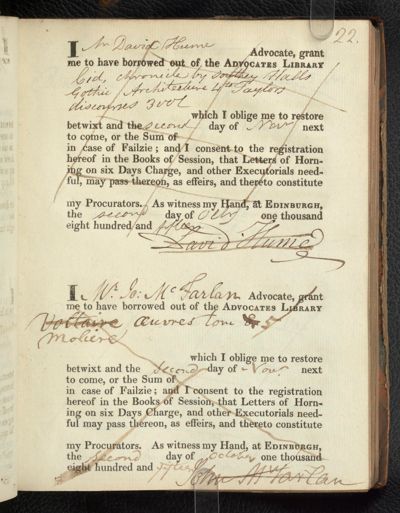 22.
I Mr David Hume Advocate, grant
me to have borrowed out of the ADVOCATES LIBRARY
Cid, chronicle by Southey Halls
Gothic Architecture 4to Taylors
discourses 3 vol
which I oblige me to restore
betwixt and the second day of Novr next
to come, or the Sum of
in case of Failzie; and I consent to the registration
hereof in the Books of Session, that Letters of Horn-
ing on six Days Charge, and other Executorials need-
ful, may pass thereon, as effeirs, and thereto constitute
my Procurators. As witness my Hand, at EDINBURGH,
the second day of Octr one thousand
eight hundred and fifteen
David Hume
I Mr Jo: McFarlan Advocate, grant
me to have borrowed out of the ADVOCATES LIBRARY
Voltaire œuvres tom 5
Moliere
which I oblige me to restore
betwixt and the second day of Novr next
to come, or the Sum of
in case of Failzie; and I consent to the registration
hereof in the Books of Session, that Letters of Horn-
ing on six Days Charge, and other Executorials need-
ful may pass thereon, as effeirs, and thereto constitute
my Procurators. As witness my Hand, at EDINBURGH,
the second day of October one thousand
eight hundred and fifteen
John McFarlan